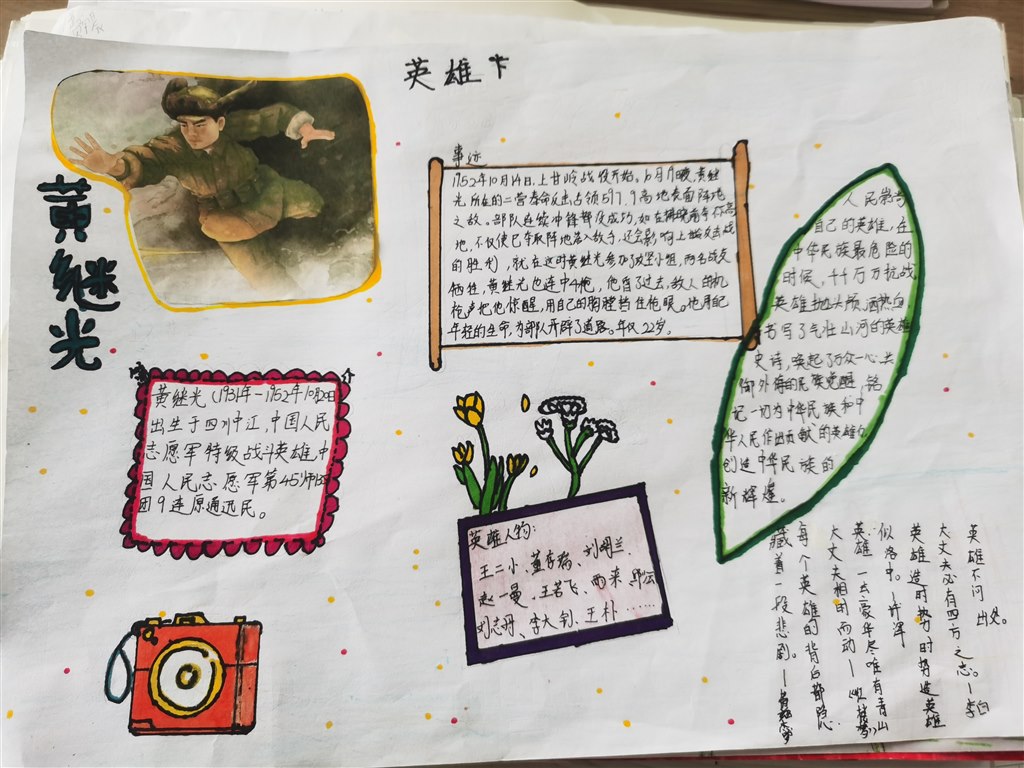 英雄卡
黄继光
事迹
1952年10月14日,上甘岭战役开始。10月19日晚,黄继
光所在的二营奉命反击占领597.9高地表面阵地
之敌。部队连续冲锋都没成功,如在拂晓前
地,不仅使已夺取阵地落入敌手,还会影响上
的胜利,就在这时黄继光参加了攻坚小组,两名战友
牺牲,黄继光也连中4枪,他昏了过去,敌人的机
枪声把他惊醒,用自己的胸膛挡住枪眼。他用自己
年轻的生命,为部队开辟了道路。年仅22岁。
人民崇尚
自己的英雄,在
中华民族最危险的
时候,千千万万抗战
英雄抛头颅洒热血
书写了气壮山河的英雄
史诗,唤起了万众一心共
御外侮的民族觉醒,铭
记一切为中华民族和中
华人民作出贡献的英雄们
创造中华民族的
新辉煌。
黄继光(1931年-1952年10月20日
出生于四川中江,中国人民
志愿军特级战斗英雄,中
国人民志愿军第45师135
团9连原通迅民。
英雄人物:
王二小、董存瑞、刘胡兰、
赵一曼、王若飞、
刘志丹、李大钊、王朴……
英雄不问出处。
大丈夫必有四方之志。—李白
英雄造时势,时势造英雄
似洛中。—许浑
英雄一去豪华尽唯有青山
大丈夫相时而动—
每个英雄的背后都隐
藏着一段悲剧。—